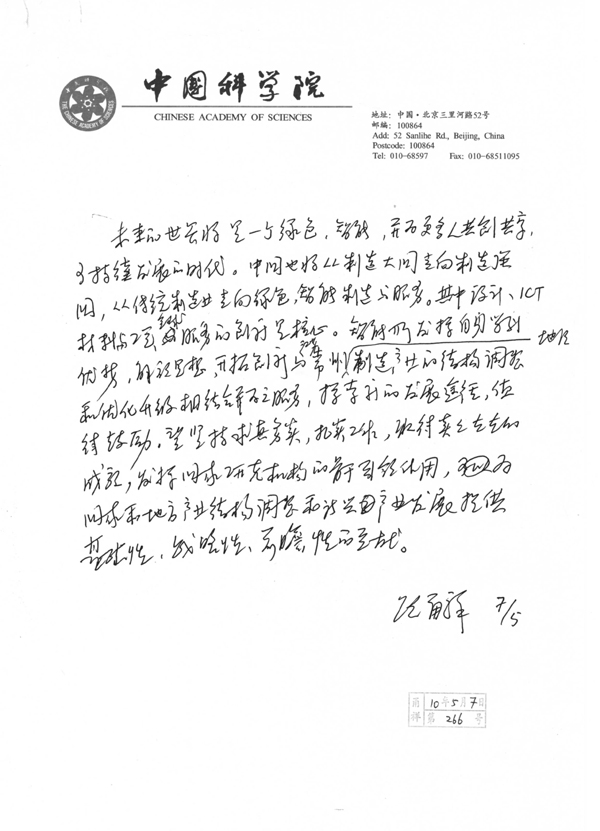 中国科学院
CHINESE ACADEMY OF SCIENCES
THE CHINESE ACADEMY OF SCIENCES
地址: 中国·北京三里河路52号
邮编: 100864
Add: 52 Sanlihe Rd., Beijing, China
Postcode: 100864
Tel: 010-68597 Fax: 010-68511095
未来的世界将是一个绿色,智能,并为更多人共创共享,
可持续发展的时代。中国也将从制造大国走向制造强
国,从传统制造业走向绿色,智能制造与服务。其中设计、ICT
材料与工艺 服务的创新是核心。智能所发挥自身学科
优势,解放思想,开拓创新,与 常州 地区
制造产业的结构调整
和优化升级相结合 服务,探索 的发展途径,值
得鼓励。望坚持求真务实,扎实工作,取得实实在在的
成就,发挥国家研究机构的骨干引领作用,
国家和地方产业结构调整和新兴产业发展提供
基础性,战略性、前瞻性的贡献。
路甬祥 7/5
甬 10年5月7日
祥 第 266 号